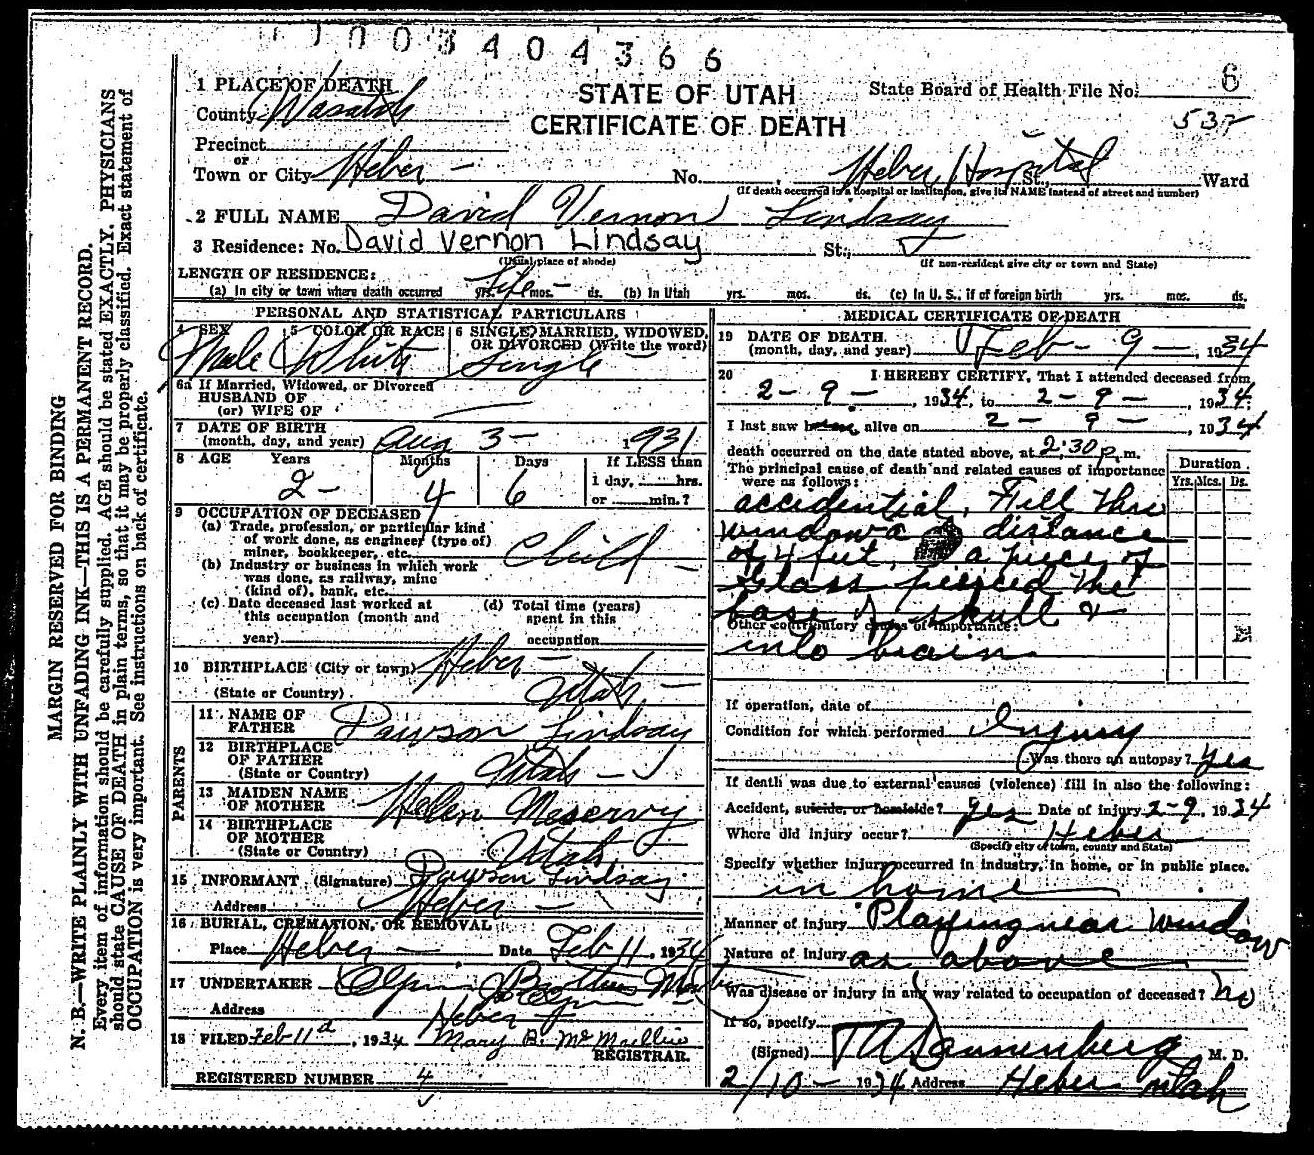 1003404366
1 PLACE OF DEATH
STATE OF UTAH
CERTIFICATE OF DEATH
State Board of Health File No. 6
County Wasatch
Precinct
or
Town or City Heber - No. , Heber Hospital St., Ward
(If death occurred in a hospital or institution, give its NAME instead of street and number)
2 FULL NAME David Vernon Lindsay
3 Residence: No. David Vernon Lindsay St.,
(Usual place of abode) (If non-resident give city or town and State)
LENGTH OF RESIDENCE:
(a) In city or town where death occurred Life yrs. mos. - ds. (b) In Utah yrs. mos. ds. (c) In U. S., if of foreign birth yrs. mos. ds.
PERSONAL AND STATISTICAL PARTICULARS
4 SEX 5 COLOR OR RACE 6 SINGLE, MARRIED, WIDOWED, OR DIVORCED (Write the word)
Male White Single -
6a If Married, Widowed, or Divorced
HUSBAND OF
(or) WIFE OF
7 DATE OF BIRTH
(month, day, and year) Aug 3 - 1931
8 AGE Years Months Days If LESS than
1 day, hrs.
or min.?
2 - 4 6
9 OCCUPATION OF DECEASED
(a) Trade, profession, or particular kind
of work done, as engineer (type of)
miner, bookkeeper, etc. Child -
(b) Industry or business in which work
was done, as railway, mine
(kind of), bank, etc.
(c) Date deceased last worked at
this occupation (month and
year)
(d) Total time (years)
spent in this
occupation
10 BIRTHPLACE (City or town) Heber -
(State or Country) Utah -
PARENTS
11 NAME OF
FATHER Dawson Lindsay
12 BIRTHPLACE
OF FATHER
(State or Country) Utah -
13 MAIDEN NAME
OF MOTHER Helen Meservy
14 BIRTHPLACE
OF MOTHER
(State or Country) Utah
15 INFORMANT (Signature) Dawson Lindsay
Address Heber -
16 BURIAL, CREMATION, OR REMOVAL
Place Heber - Date Feb 11, 1934
17 UNDERTAKER Olpin Brothers
Address Heber
18 FILED Feb 11, 1934 Mary B. McMullin
REGISTRAR.
REGISTERED NUMBER 4
MEDICAL CERTIFICATE OF DEATH
19 DATE OF DEATH.
(month, day, and year) Feb - 9 -, 1934
20 I HEREBY CERTIFY, That I attended deceased from
2 - 9 -, 1934, to 2 - 9 -, 1934.
I last saw him alive on 2 - 9 -, 1934
death occurred on the date stated above, at 2:30 p.m.
The principal cause of death and related causes of importance
were as follows:
Duration
Yrs. Mos. Ds.
accidential. Fell thru
window a distance
of 4 feet, a piece of
Glass pierced the
base of skull &
Other contributory causes of importance:
into brain.
If operation, date of
Condition for which performed Injury
Was there an autopsy? Yes
If death was due to external causes (violence) fill in also the following:
Accident, suicide, or homicide? Yes Date of injury 2-9, 1934
Where did injury occur? Heber
(Specify city or town, county and State)
Specify whether injury occurred in industry, in home, or in public place.
in home
Manner of injury Playing near Window
Nature of injury as above
Was disease or injury in any way related to occupation of deceased? No
If so, specify
(Signed) Dannenberg M. D.
2/10 - 1934 Address Heber Utah
MARGIN RESERVED FOR BINDING
N. B.—WRITE PLAINLY WITH UNFADING INK—THIS IS A PERMANENT RECORD.
Every item of information should be carefully supplied. AGE should be stated EXACTLY. PHYSICIANS
should state CAUSE OF DEATH in plain terms, so that it may be properly classified. Exact statement of
OCCUPATION is very important. See instructions on back of certificate.